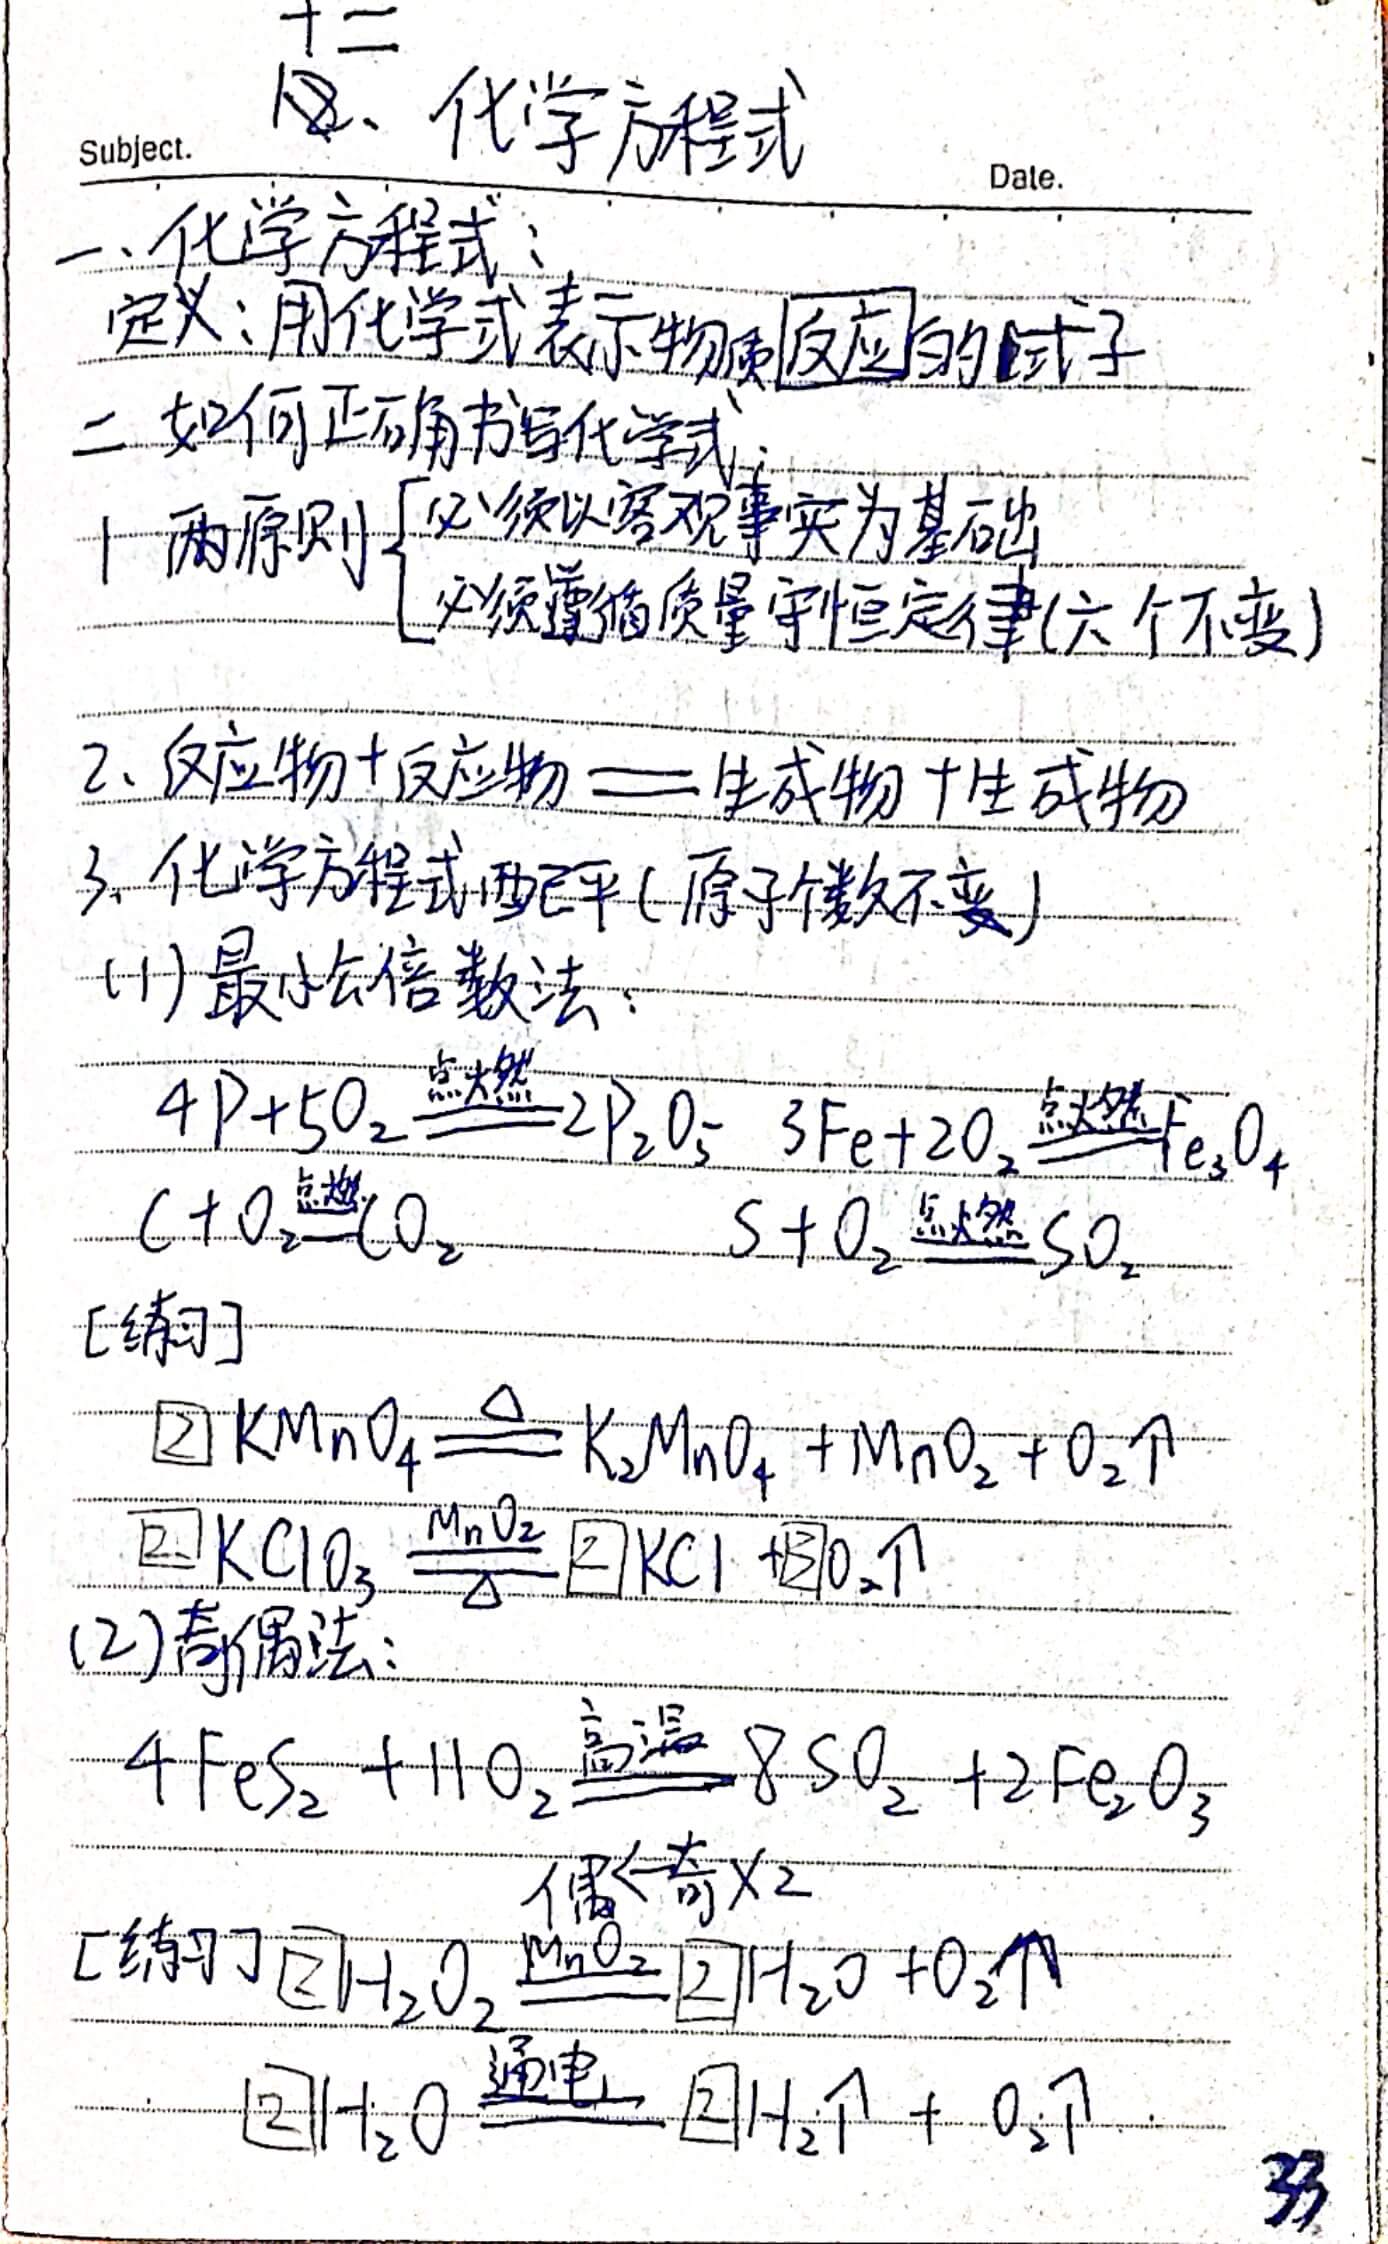 十二
、化学方程式
Subject.
Date.
一、化学方程式：
定义：用化学式表示物质反应的式子
二 如何正确书写化学式：
1 两原则{必须以客观事实为基础
必须遵循质量守恒定律(六个不变)
2、反应物+反应物══生成物+生成物
3、化学方程式配平(原子个数不变)
(1)最小公倍数法：
4P+5O₂ 点燃══ 2P₂O₅ 3Fe+2O₂ 点燃══ Fe₃O₄
C+O₂ 点燃══ CO₂ S+O₂ 点燃══ SO₂
[练习]
2 KMnO₄ △══ K₂MnO₄+MnO₂+O₂↑
2 KClO₃ MnO₂══△ 2 KCl+3O₂↑
(2)奇偶法：
4FeS₂+11O₂ 高温══ 8SO₂+2Fe₂O₃
偶←奇×2
[练习] 2 H₂O₂ MnO₂══ 2 H₂O+O₂↑
2 H₂O 通电══ 2 H₂↑+O₂↑
33